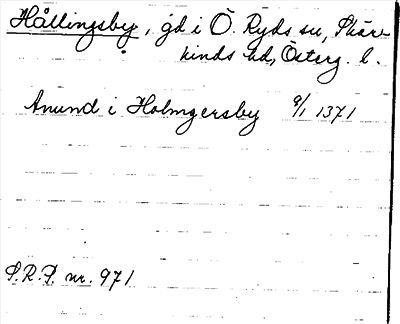 Hållingsby, gd i Ö. Ryds sn, Skäre
kinds hd, Österg. l.
Anund i Holmgersby 9/1 1371
S.R.P. nr. 971